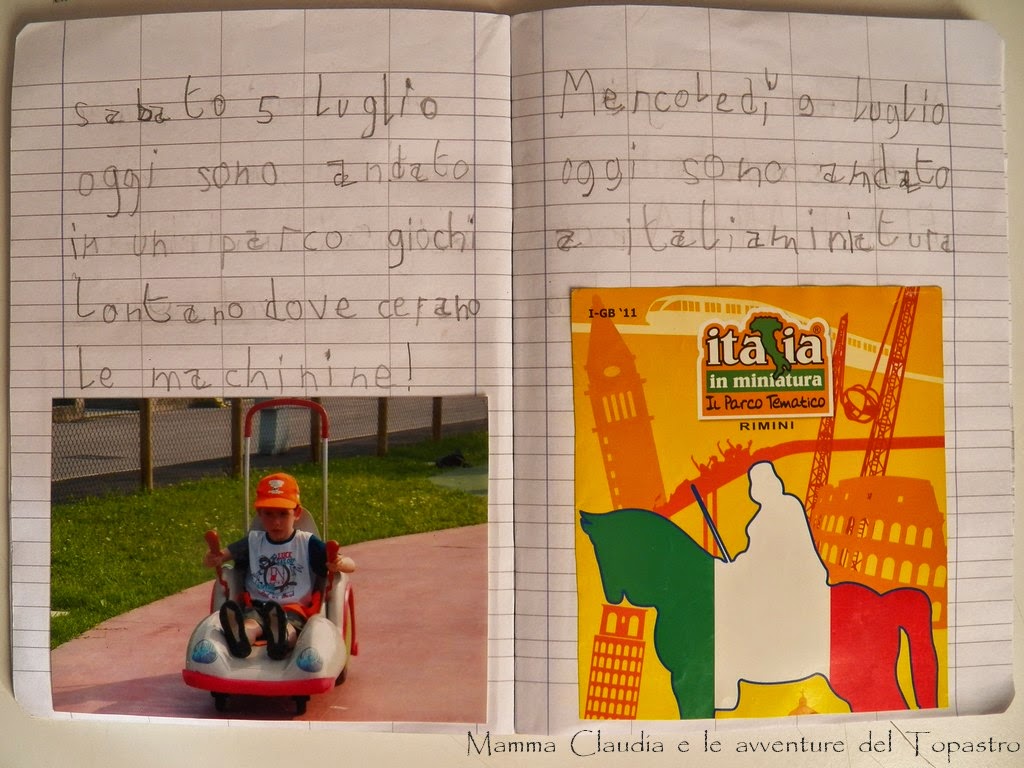 sabato 5 luglio
oggi sono andato
in un parco giochi
lontano dove cerano
le machinine!
Mercoledì 9 luglio
oggi sono andato
a italiaminiatura
I-GB '11
italia
in miniatura
Il Parco Tematico
RIMINI
Mamma Claudia e le avventure del Topastro